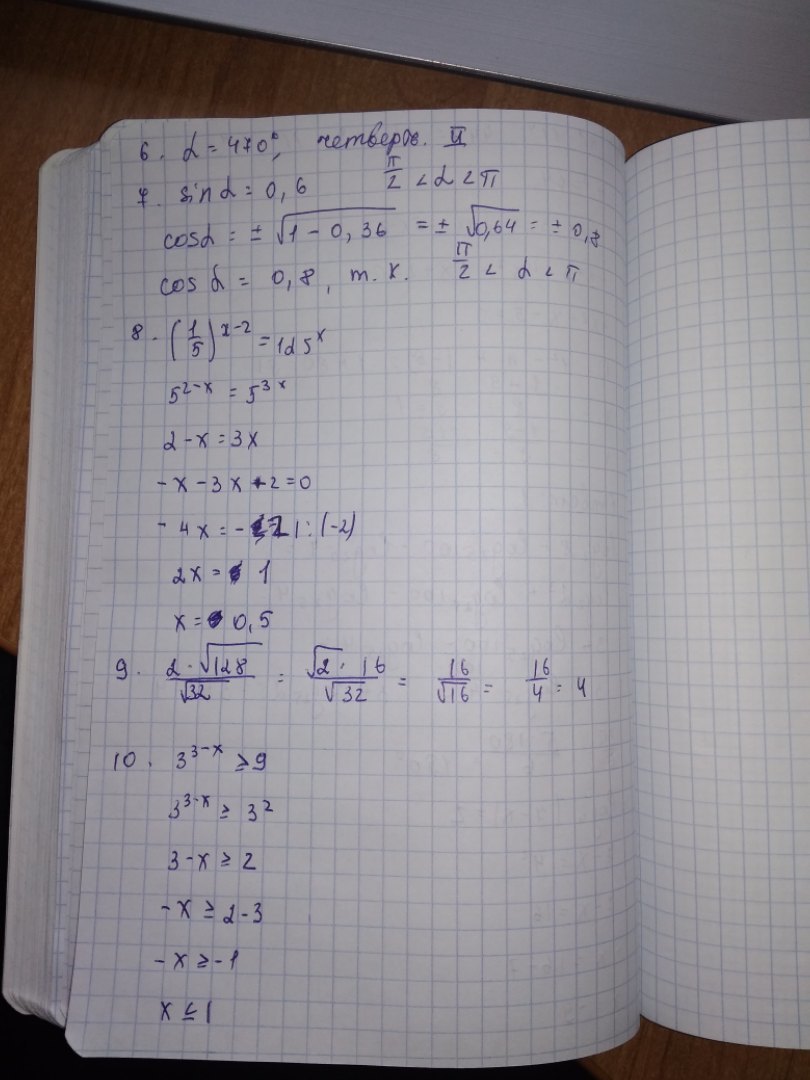 6. α = 470°, четверть. II
7. sin α = 0,6 π/2 < α < π
cos α = ± √(1 - 0,36) = ± √0,64 = ± 0,8
cos α = 0,8, т.к. π/2 < α < π
8. (1/5)^(x-2) = 125^x
5^(2-x) = 5^(3x)
2 - x = 3x
- x - 3x + 2 = 0
- 4x = - 2 | : (-2)
2x = 1
x = 0,5
9. (2 · √128)/√32 = (√2 · 16)/√32 = 16/√16 = 16/4 = 4
10. 3^(3-x) ≥ 9
3^(3-x) ≥ 3^2
3 - x ≥ 2
- x ≥ 2 - 3
- x ≥ - 1
x ≤ 1